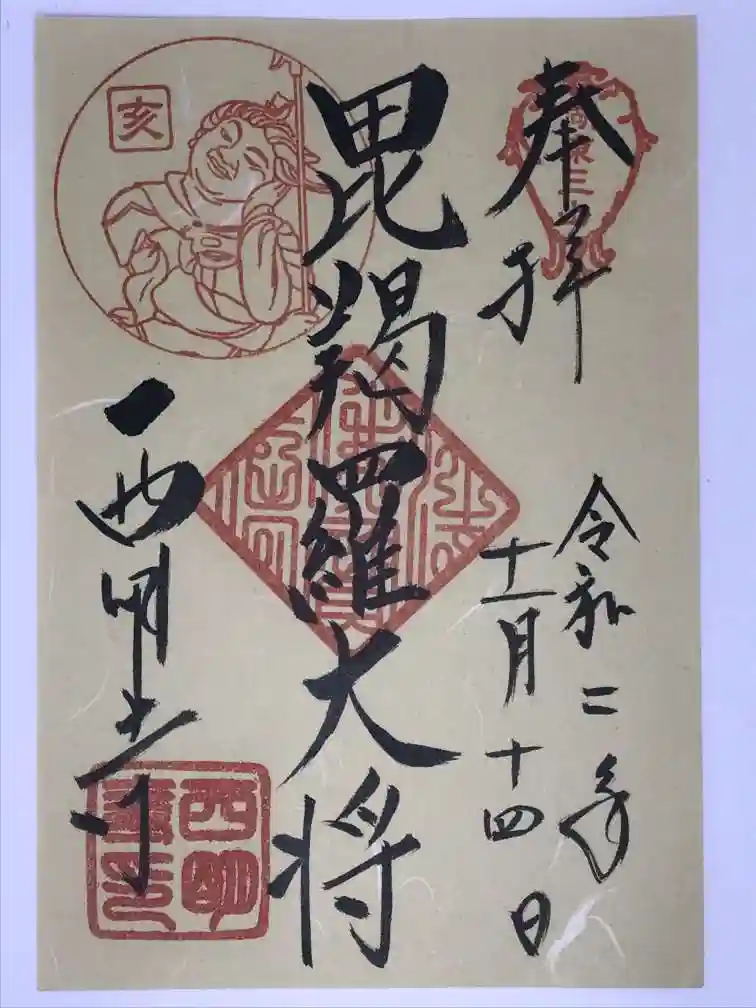 奉拝
令和二年
十一月十四日
毘羯羅大将
西明寺
亥
西明